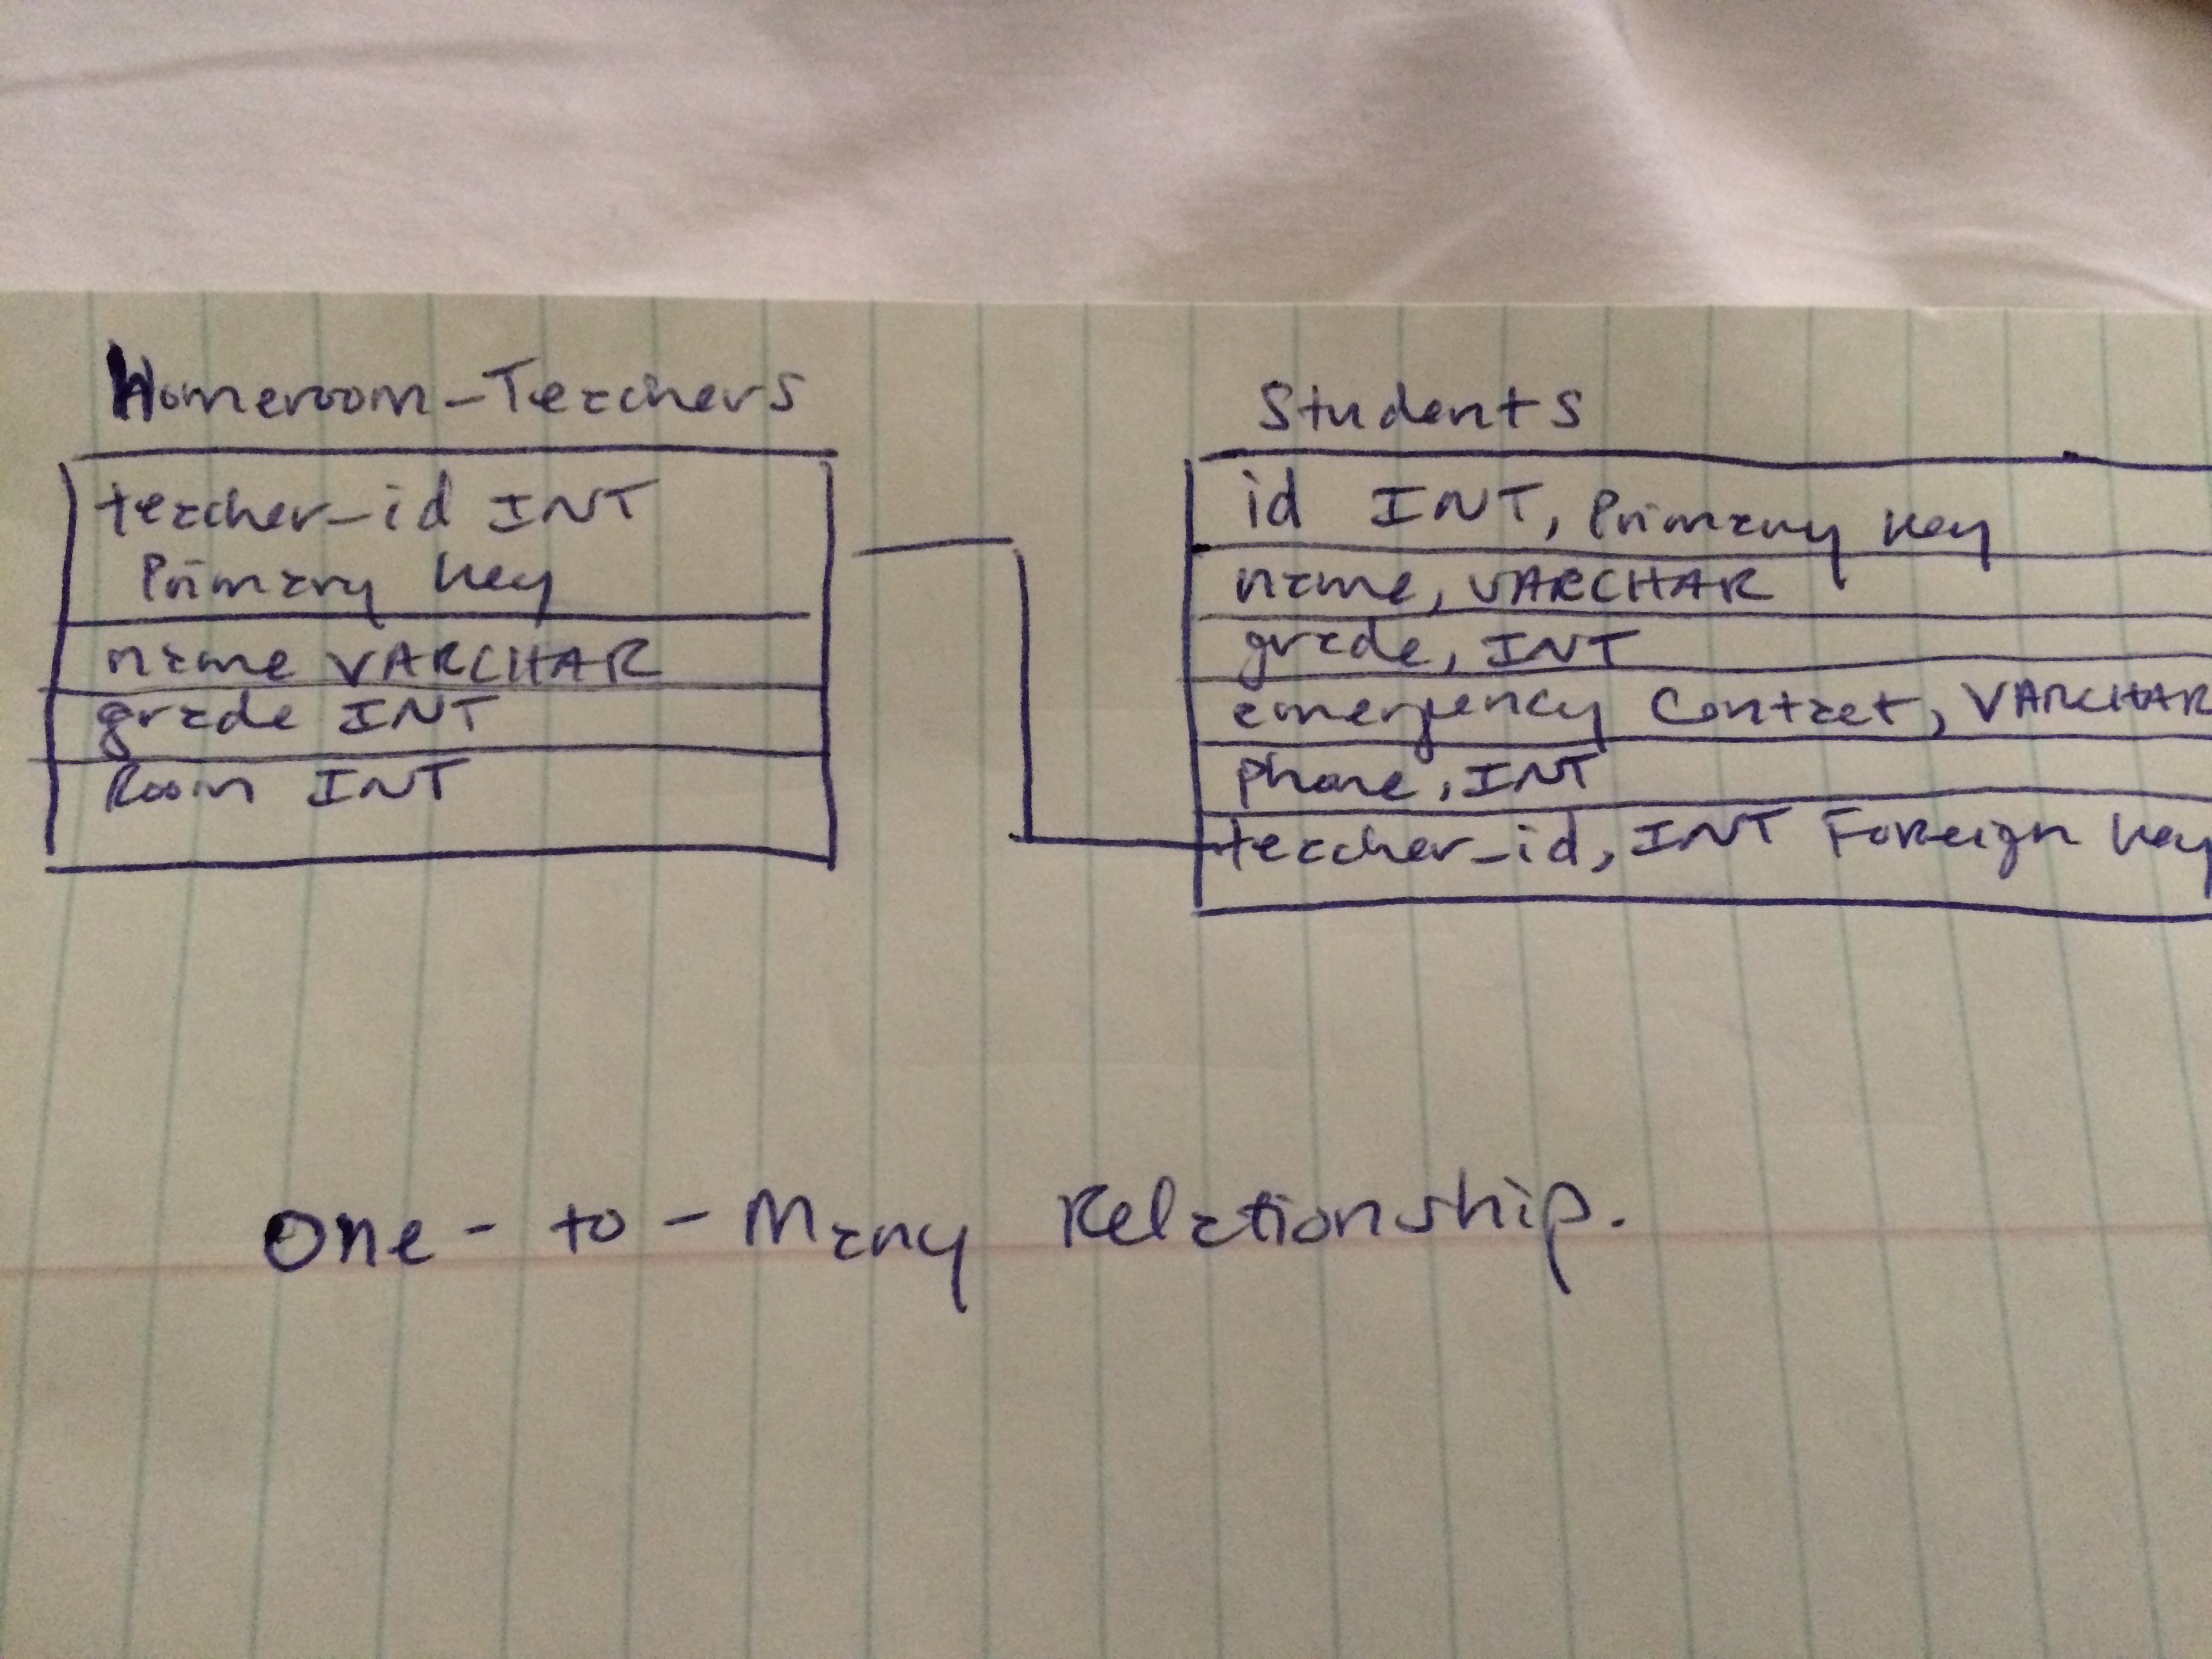 Homeroom-Teachers
teacher-id INT
Primary Key
name VARCHAR
grade INT
Room INT
Students
id INT, Primary Key
name, VARCHAR
grade, INT
emergency Contact, VARCHAR
phone, INT
teacher-id, INT Foreign Key
One-to-Many Relationship.